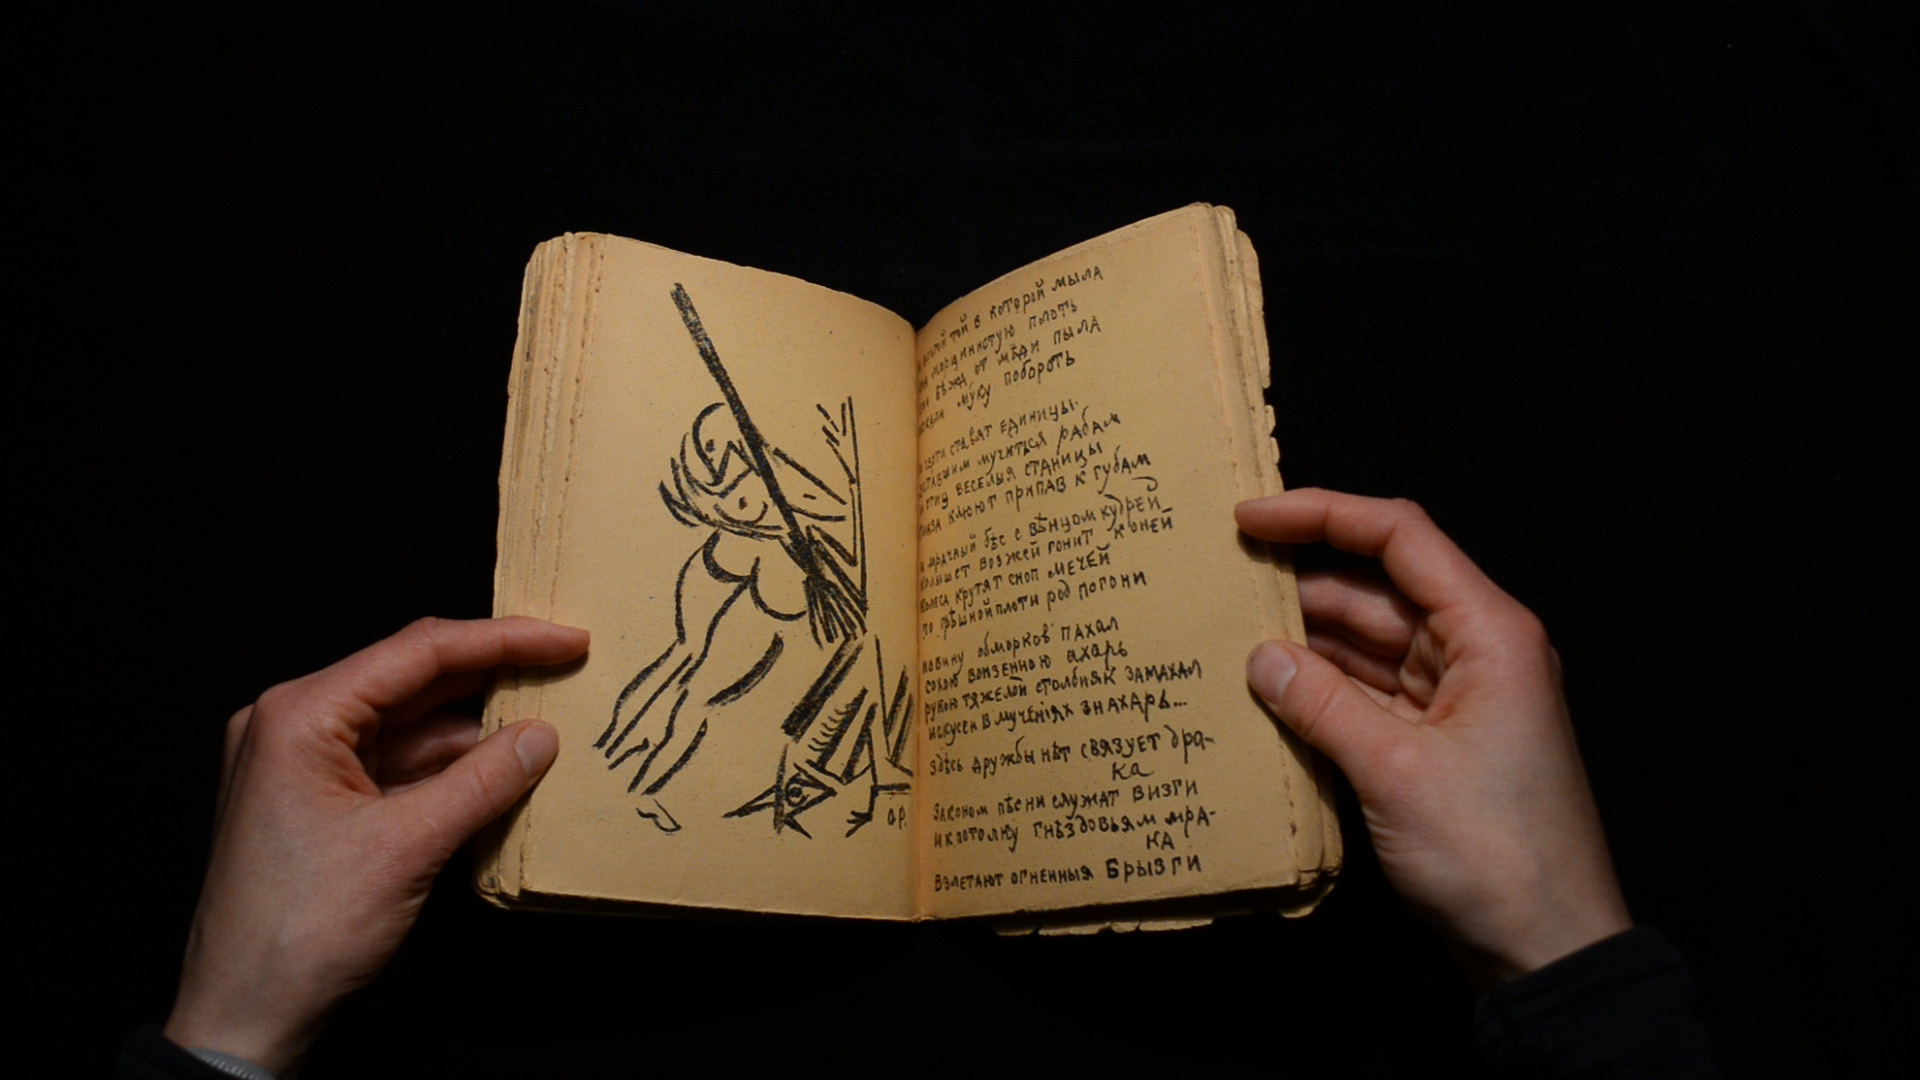 О.Р.
той в которой мыла
морщинистую плоть
бѣжа от мѣди пыла
муку побороть
черти ставят единицы.
уставшим мучиться рабам
птиц веселыя станицы
глаза клюют припав к губам
и мрачный бѣс с вѣнцом кудрей
колышет возжей гонит коней
колеса крутят сноп мечей
по грѣшной плоти род погони
новину обморков пахал
сохою вонзенною ахарь
рукою тяжелой столбняк замахал
искусен в мучениях знахарь...
здѣсь дружбы нѣт связует дра-
ка
законом пѣсни служат визги
и к потолку гнѣздовьям мра-
ка
взлетают огненныя брызги